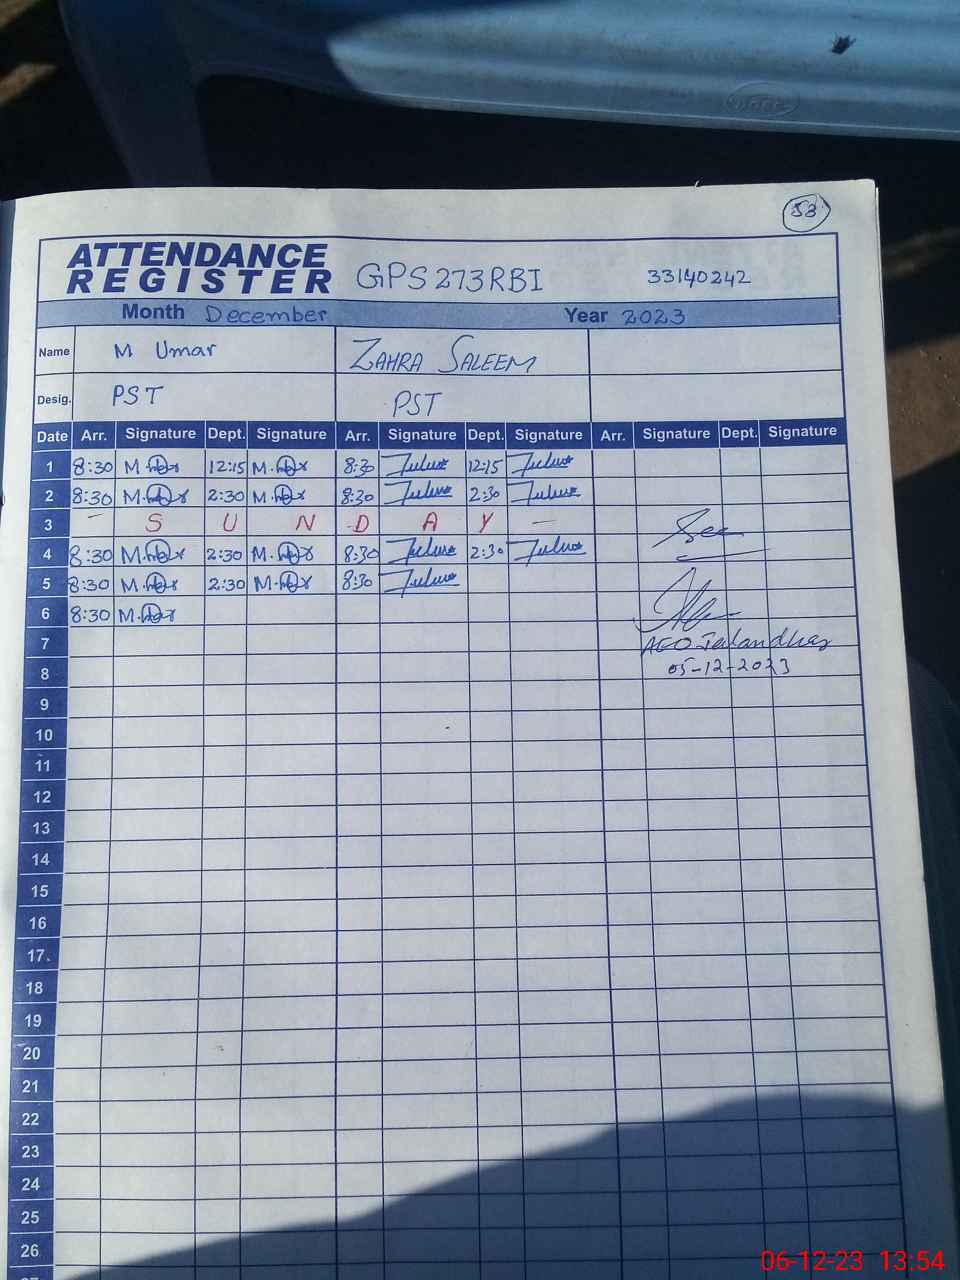 53
ATTENDANCE
REGISTER GPS 273RBI 33140242
Month December Year 2023
Name M Umar ZAHRA SALEEM
Desig. PST PST
Date Arr. Signature Dept. Signature Arr. Signature Dept. Signature Arr. Signature Dept. Signature
1 8:30 12:15 8:30 12:15
2 8:30 2:30 8:30 2:30
3 — S U N D A Y —
4 8:30 2:30 8:30 2:30
5 8:30 2:30 8:30
6 8:30
7
8 05-12-2023
9
10
11
12
13
14
15
16
17
18
19
20
21
22
23
24
25
26
06-12-23 13:54